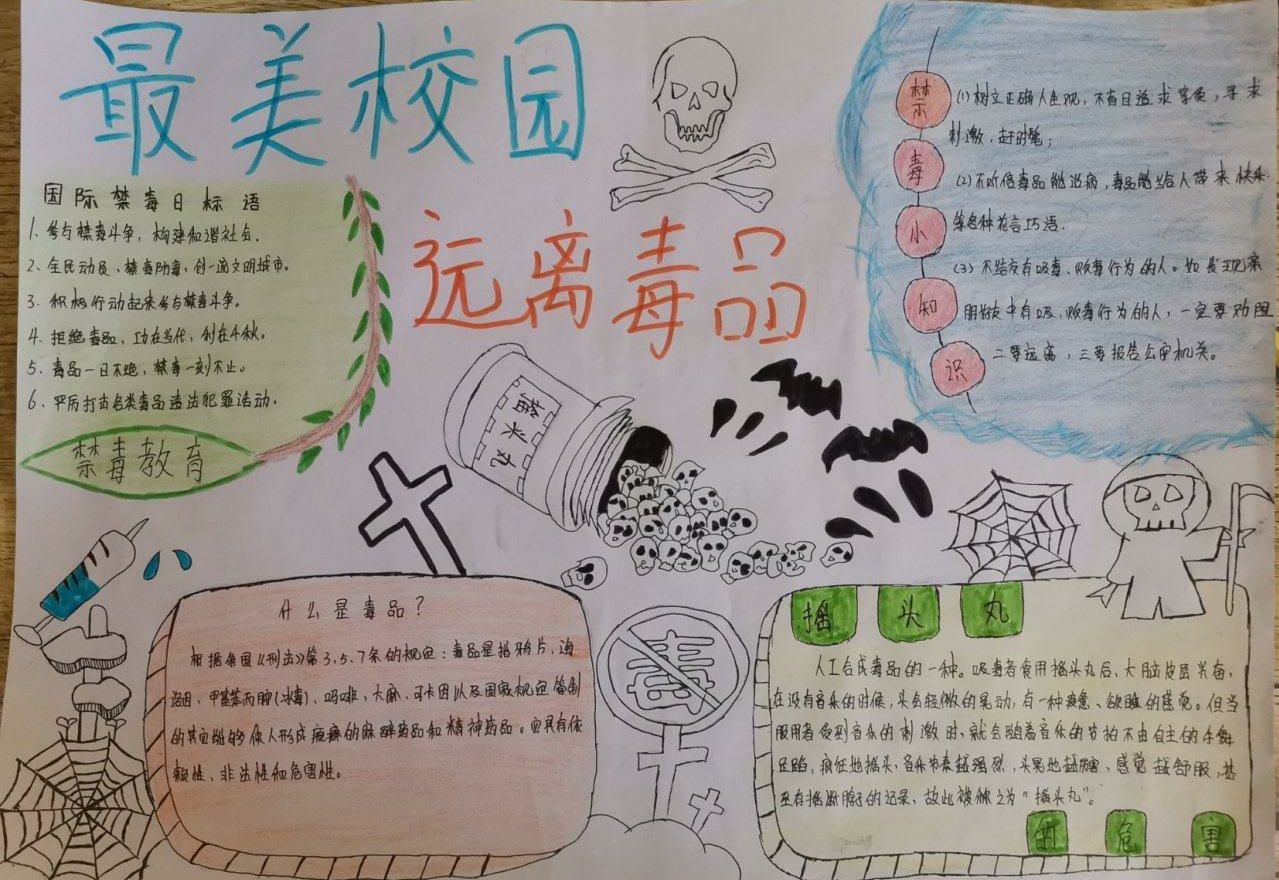 最美校园
远离毒品
国际禁毒日标语
1、参与禁毒斗争，构建和谐社会.
2、全民动员，禁毒防毒，创一流文明城市。
3、积极行动起来参与禁毒斗争。
4、拒绝毒品，功在当代，利在千秋。
5、毒品一日不绝，禁毒一刻不止。
6、严厉打击各类毒品违法犯罪活动.
禁毒教育
禁毒小知识
(1) 树立正确人生观，不盲目追求享受，寻求
刺激，赶时髦；
(2) 不听信毒品能治病，毒品能给人带来快乐
等各种花言巧语.
(3) 不结交有吸毒、贩毒行为的人。如发现亲
朋好友中有吸、贩毒行为的人，一定要劝阻
二要远离，三要报告公安机关。
摇头丸
什么是毒品？
根据我国《刑法》第3.5.7条的规定：毒品是指鸦片，海
洛因，甲基苯丙胺(冰毒)，吗啡，大麻，可卡因以及国家规定管制
的其它能够使人形成瘾癖的麻醉药品和精神药品。它具有依
赖性、非法性和危害性。
毒
摇头丸
人工合成毒品的一种。吸毒者食用摇头丸后，大脑皮层兴奋，
在没有音乐的时候，头会轻微的晃动，有一种疲惫、欲睡的感觉。但当
服用者受到音乐的刺激时，就会随着音乐的节拍不由自主的手舞
足蹈，疯狂地摇头，音乐节奏越强烈，头晃地越厉害、感觉越舒服，甚
至有摇断脖子的记录，故此被称之为“摇头丸”。
的危害